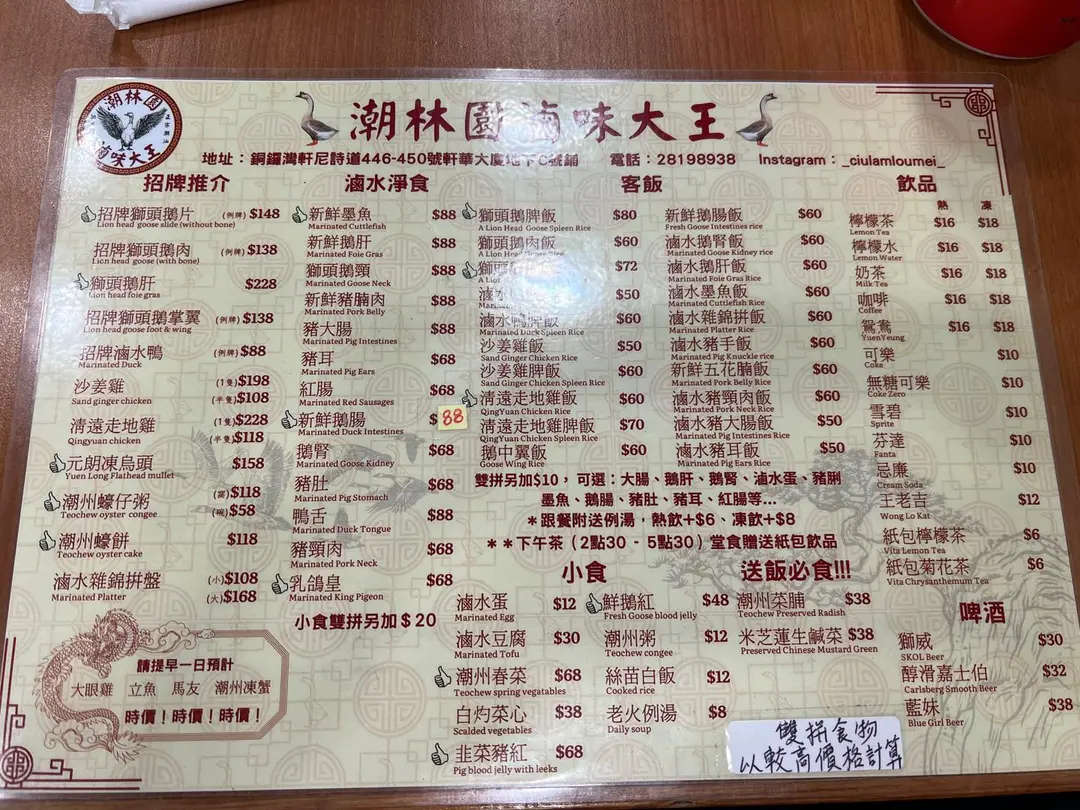 潮林園
滷味大王
潮林園滷味大王
地址：銅鑼灣軒尼詩道446-450號軒華大廈地下C號鋪 電話：28198938 Instagram：_ciulamloumei_
招牌推介
招牌獅頭鵝片 (例牌) $148
Lion head goose slide (without bone)
招牌獅頭鵝肉 (例牌) $138
Lion head goose (with bone)
獅頭鵝肝 $228
Lion head foie gras
招牌獅頭鵝掌翼 (例牌) $138
Lion head goose foot & wing
招牌滷水鴨 (例牌) $88
Marinated Duck
沙姜雞 (1隻) $198
Sand ginger chicken (半隻) $108
清遠走地雞 (1隻) $228
Qingyuan chicken (半隻) $118
元朗凍烏頭 $158
Yuen Long Flathead mullet
潮州蠔仔粥 (窩) $118
Teochew oyster congee (碗) $58
潮州蠔餅 $118
Teochew oyster cake
滷水雜錦拼盤 (小) $108
Marinated Platter (大) $168
請提早一日預計
大眼雞 立魚 馬友 潮州凍蟹
時價！時價！時價！
滷水淨食
新鮮墨魚 $88
Marinated Cuttlefish
新鮮鵝肝 $88
Marinated Foie Gras
獅頭鵝頸 $88
Marinated Goose Neck
新鮮豬腩肉 $88
Marinated Pork Belly
豬大腸 $88
Marinated Pig Intestines
豬耳 $68
Marinated Pig Ears
紅腸 $68
Marinated Red Sausages
新鮮鵝腸 $88
Marinated Duck Intestines
鵝腎 $68
Marinated Goose Kidney
豬肚 $68
Marinated Pig Stomach
鴨舌 $88
Marinated Duck Tongue
豬頸肉 $68
Marinated Pork Neck
乳鴿皇 $68
Marinated King Pigeon
小食雙拼另加$20
客飯
獅頭鵝脾飯 $80
A Lion Head Goose Spleen Rice
獅頭鵝肉飯 $60
A Lion Head Goose Rice
獅頭 $72
A Lion
滷 $50
滷水鴨脾飯 $60
Marinated Duck Spleen Rice
沙姜雞飯 $50
Sand Ginger Chicken Rice
沙姜雞脾飯 $60
Sand Ginger Chicken Spleen Rice
清遠走地雞飯 $60
QingYuan Chicken Rice
清遠走地雞脾飯 $70
QingYuan Chicken Spleen Rice
鵝中翼飯 $60
Goose Wing Rice
新鮮鵝腸飯 $60
Fresh Goose Intestines rice
滷水鵝腎飯 $60
Marinated Goose Kidney rice
滷水鵝肝飯 $60
Marinated Foie Gras Rice
滷水墨魚飯 $60
Marinated Cuttlefish Rice
滷水雜錦拼飯 $60
Marinated Platter Rice
滷水豬手飯 $60
Marinated Pig Knuckle rice
新鮮五花腩飯 $60
Marinated Pork Belly Rice
滷水豬頸肉飯 $60
Marinated Pork Neck Rice
滷水豬大腸飯 $50
Marinated Pig Intestines Rice
滷水豬耳飯 $50
Marinated Pig Ears Rice
雙拼另加$10，可選：大腸、鵝肝、鵝腎、滷水蛋、豬脷
墨魚、鵝腸、豬肚、豬耳、紅腸等...
*跟餐附送例湯，熱飲+$6、凍飲+$8
**下午茶（2點30 - 5點30）堂食贈送紙包飲品
小食
滷水蛋 $12
Marinated Egg
滷水豆腐 $30
Marinated Tofu
潮州春菜 $68
Teochew spring vegatables
白灼菜心 $38
Scalded vegetables
韭菜豬紅 $68
Pig blood jelly with leeks
鮮鵝紅 $48
Fresh Goose blood jelly
潮州粥 $12
Teochew congee
絲苗白飯 $12
Cooked rice
老火例湯 $8
Daily soup
送飯必食!!!
潮州菜脯 $38
Teochew Preserved Radish
米芝蓮生鹹菜 $38
Preserved Chinese Mustard Green
雙拼食物
以較高價格計算
飲品
熱 凍
檸檬茶 $16 $18
Lemon Tea
檸檬水 $16 $18
Lemon Water
奶茶 $16 $18
Milk Tea
咖啡 $16 $18
Coffee
鴛鴦 $16 $18
YuenYeung
可樂 $10
Coke
無糖可樂 $10
Coke Zero
雪碧 $10
Sprite
芬達 $10
Fanta
忌廉 $10
Cream Soda
王老吉 $12
Wong Lo Kat
紙包檸檬茶 $6
Vita Lemon Tea
紙包菊花茶 $6
Vita Chrysanthemum Tea
啤酒
獅威 $30
SKOL Beer
醇滑嘉士伯 $32
Carlsberg Smooth Beer
藍妹 $38
Blue Girl Beer